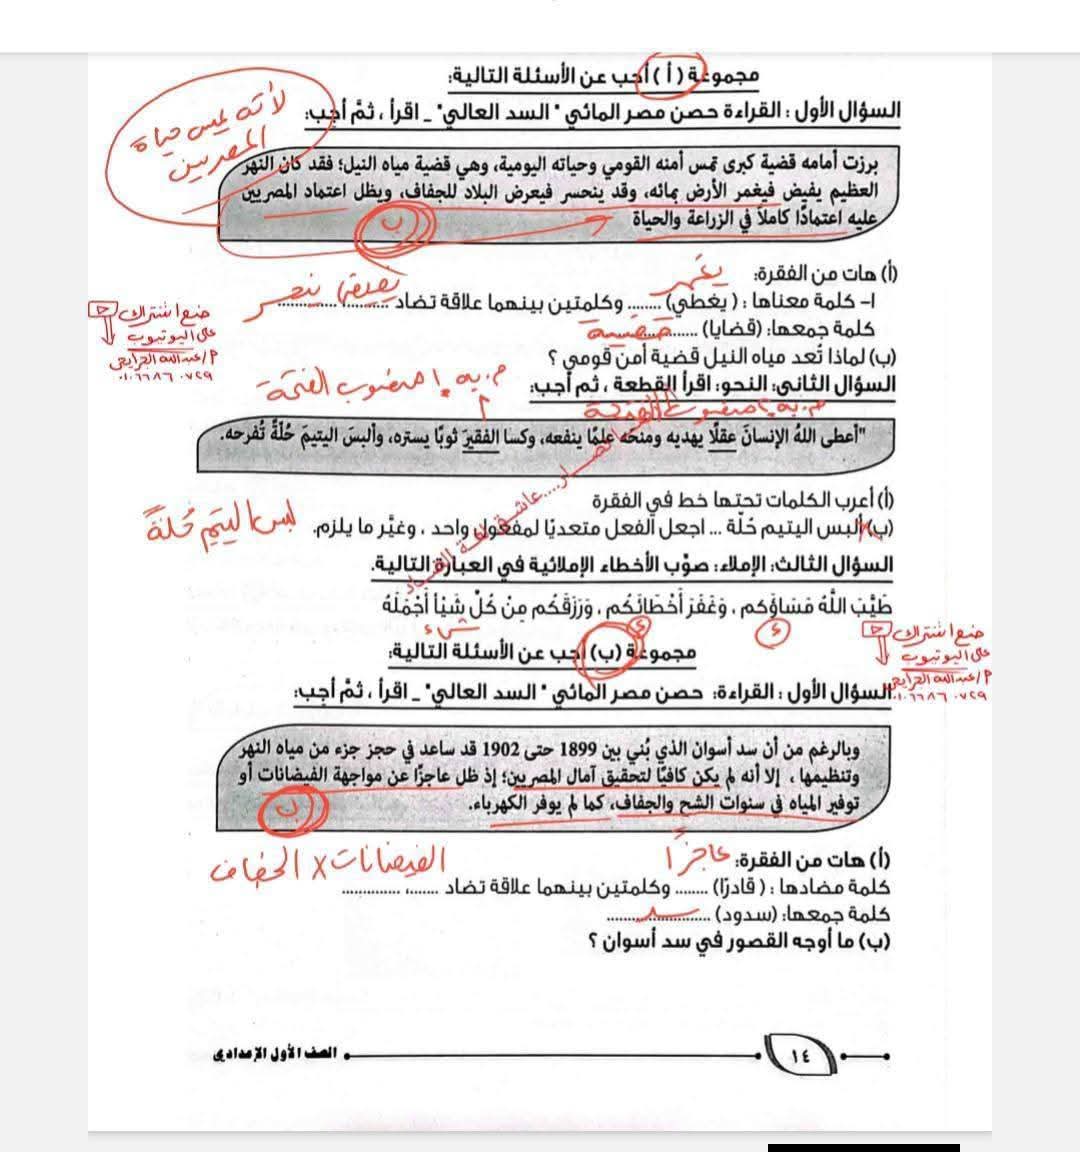 مجموعة (أ) أجب عن الأسئلة التالية:
السؤال الأول : القراءة حصن مصر المائي " السد العالي" _ اقرأ ، ثمَّ أجب:
لأنه يمس حياة
المصريين
برزت أمامه قضية كبرى تمس أمنه القومي وحياته اليومية، وهي قضية مياه النيل؛ فقد كان النهر
العظيم يفيض فيغمر الأرض بمائه، وقد ينحسر فيعرض البلاد للجفاف، ويظل اعتماد المصريين
عليه اعتمادًا كاملاً في الزراعة والحياة
ب
(أ) هات من الفقرة:
يغمر
١- كلمة معناها : ( يغطي) ........ وكلمتين بينهما علاقة تضاد ....................
يفيض ينحسر
كلمة جمعها: (قضايا) ....................
قضية
(ب) لماذا تُعد مياه النيل قضية أمن قومي ؟
السؤال الثاني: النحو: اقرأ القطعة ، ثم أجب:
م. به ١ منصوب الفتحة
"أعطى اللهُ الإنسانَ عقلًا يهديه ومنحه علمًا ينفعه، وكسا الفقيرَ ثوبًا يستره، وألبسَ اليتيمَ حُلّةً تُفرحه.
(أ) أعرب الكلمات تحتها خط في الفقرة
(ب) ألبس اليتيم حُلّة ... اجعل الفعل متعديًا لمفعول واحد ، وغيِّر ما يلزم.
لبس اليتيمُ حُلةً
السؤال الثالث: الإملاء: صوِّب الأخطاء الإملائية في العبارة التالية.
طَيَّبَ اللَّهُ مَسَاؤَكم ، وَغَفَرَ أَخْطَائَكُم ، وَرَزَقَكُم مِنْ كُلِّ شَيْأ أَجْمَلَهُ
ء
ء
شيء
مجموعة (ب) أجب عن الأسئلة التالية:
السؤال الأول : القراءة: حصن مصر المائي " السد العالي" _ اقرأ ، ثمَّ أجب:
وبالرغم من أن سد أسوان الذي بُني بين 1899 حتى 1902 قد ساعد في حجز جزء من مياه النهر
وتنظيمها ، إلا أنه لم يكن كافيًا لتحقيق آمال المصريين؛ إذ ظل عاجزًا عن مواجهة الفيضانات أو
توفير المياه في سنوات الشح والجفاف، كما لم يوفر الكهرباء.
ب
(أ) هات من الفقرة:
عاجزًا
الفيضانات X الجفاف
كلمة مضادها : ( قادرًا) ........ وكلمتين بينهما علاقة تضاد ........، ..............
كلمة جمعها: (سدود) ........................
سد
(ب) ما أوجه القصور في سد أسوان ؟
١٤
الصف الأول الإعدادى